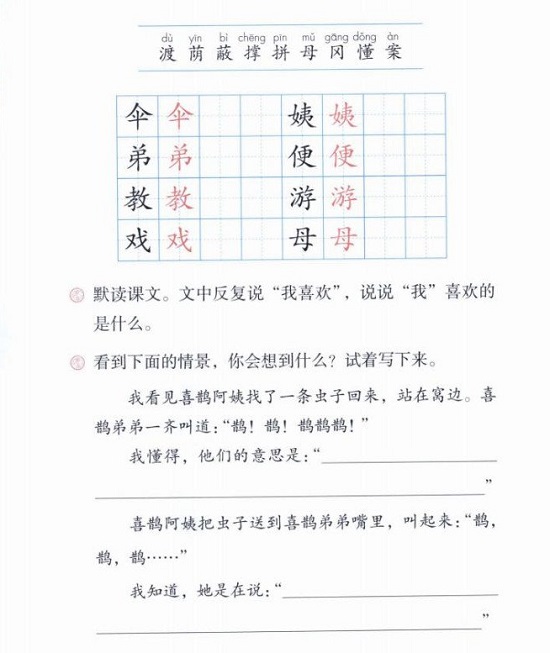 dù yīn bì chēng pīn mǔ gāng dǒng àn
渡 荫 蔽 撑 拼 母 冈 懂 案
伞 伞 姨 姨
弟 弟 便 便
教 教 游 游
戏 戏 母 母
默读课文。文中反复说“我喜欢”，说说“我”喜欢的
是什么。
看到下面的情景，你会想到什么？试着写下来。
我看见喜鹊阿姨找了一条虫子回来，站在窝边。喜
鹊弟弟一齐叫道：“鹊！鹊！鹊鹊鹊！”
我懂得，他们的意思是：“
”
喜鹊阿姨把虫子送到喜鹊弟弟嘴里，叫起来：“鹊，
鹊，鹊……”
我知道，她是在说：“
”